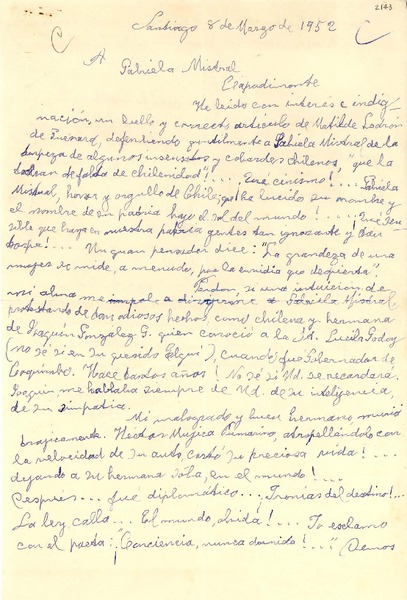 2183
Santiago 8 de Marzo de 1952
A
Gabriela Mistral
Rapadinante
He leido con interés e indig
nación, un bello y correcto artículo de Matilde Ladrón
de Guevara, defendiendo gentilmente a Gabriela Mistral de la
torpeza de algunos insensatos y cobardes chilenos, "que la
tachan de falta de chilenidad"!.... Qué cinismo!.... Gabriela
Mistral, honor y orgullo de Chile; que ha lucido su nombre y
el nombre de su patria bajo el sol del mundo!..... Qué
sible que haya en nuestra patria gentes tan ignorante y
Un gran pensador dice: "La grandeza de una
mujer se mide, a menudo, por la envidia que despierta".
Perdon, si una intuición de
mi alma me impele a dirigirme a Gabriela Mistral,
protestando de tan odiosos hechos como chilena y hermana
de Joaquín González G. quien conoció a la Sta. Lucila Godoy
(no sé si en su querido Elqui), cuando fué Gobernador de
Coquimbo. Hace tantos años! No sé si Ud. se recordará.
Joaquín me hablaba siempre de Ud. de su inteligencia,
de su simpatía.
Mi malogrado y buen hermano murió
trágicamente. Héctor Mujica Pumarino, atropellándolo con
la velocidad de su auto, cortó su preciosa vida!....
dejando a su hermana sola, en el mundo!....
Después... fué diplomático... Ironías del destino!...
La ley calla... El mundo, olvida!.... Yo exclamo
con el poeta: "Conciencia, nunca dormida!...." Demos